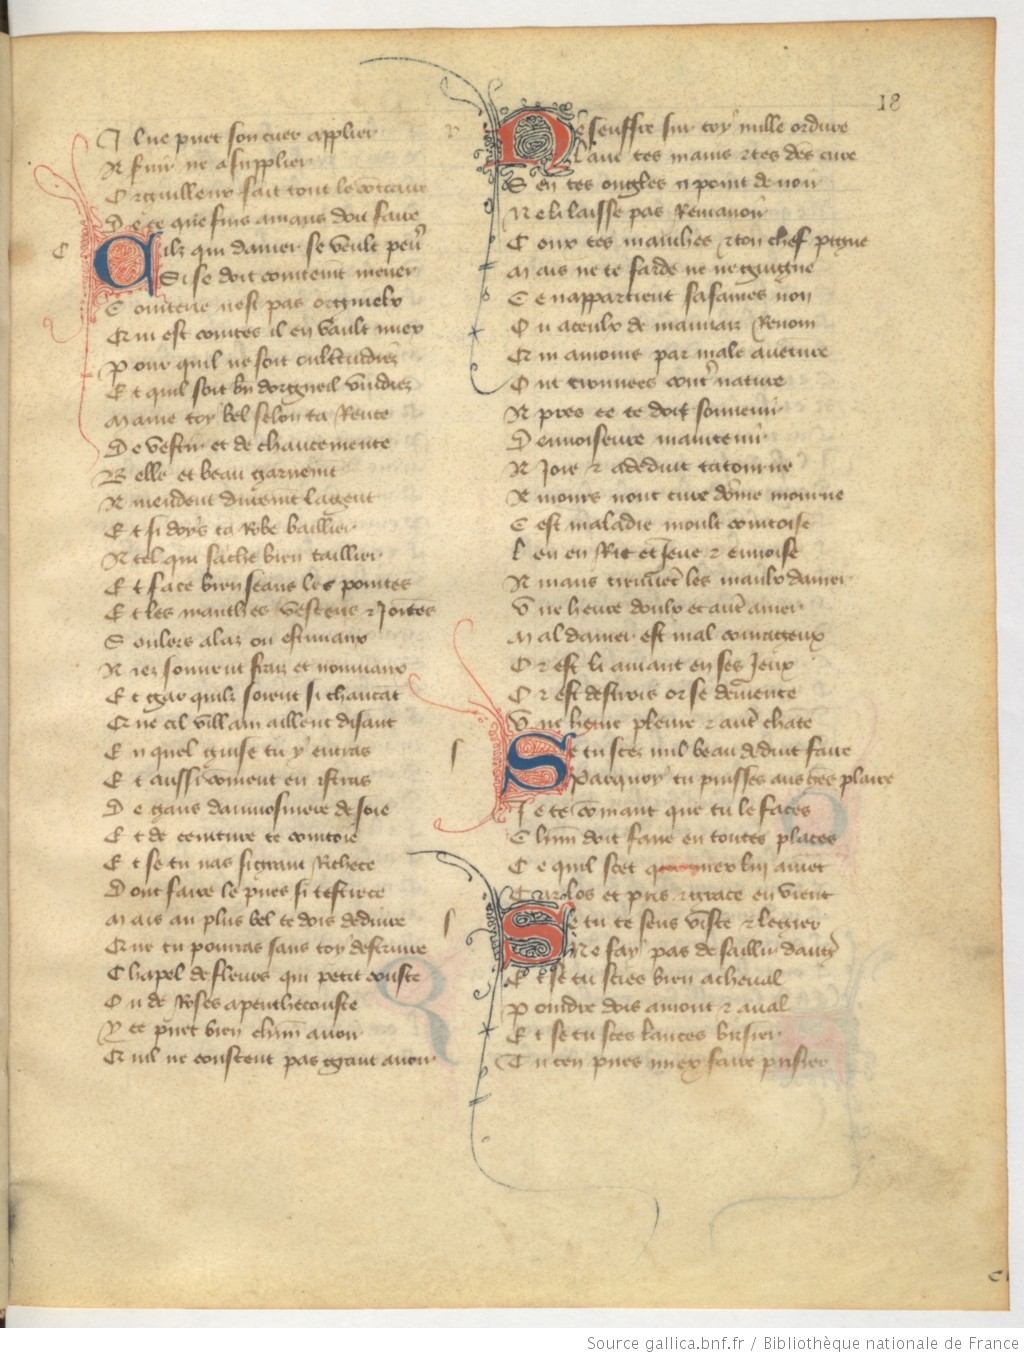 18
Il ne puet son cuer applier
A servir ne a supplier
Orguilleux fait tout le contraire
De ce que fins amans doit faire
c
Cilz qui damer se veult pener
Si se doit cointement mener
Cointerie nest pas orgueulx
Cr qui est cointes il en vault miex
Pour quil ne soit oultrecuidiez
Et quil soit bien dorgueil vuidiez
Maine toy bel selon ta rente
De vestir et de chaucemente
Belle et beau garnement
Amendent durement la gent
Et si doys ta robe baillier
A tel qui sache bien taillier
Et face bien seans les pointes
Et les manches seans et jointes
Soulers a laz ou estiviaux
Aiez souvent fraiz et nouviaux
Et gar quilz soient si chaucat
Que cil villain aillent disant
En quel guise tu y entras
Et aussi coment en istras
De gans daumosniere de soie
Et de ceinture te cointoie
Et se tu nas si grant richece
Dont faire le pues si testrece
Mais au plus bel te dois deduire
Que tu pourras sans toy destruire
Chapel de fleurs qui petit couste
Ou de roses a penthecouste
Y ce puet bien chun avoir
Quil ne coustent pas grant avoir
n
Ne seuffre sur toy nulle ordure
Laue tes mains et tes dens cure
Sen tes ongles a point de noir
Ne li laisse pas remanoir
Cous tes manches et ton chef pigne
Mais ne te farde ne ne guigne
Ce nappartient sa fames non
Ou a ceulx de mauvaiz renom
Qui amours par male aventure
Ont trouvees contre nature
Apres ce te doit souvenir
Denvoiseure maintenir
A joie et a deduit tatourne
Amours nont cure domme mourne
Cest maladie moult cointoise
Len en rit et jeue et envoise
Amans trevuent les maulx damer
Une heure doulx et autre amer
Mal damer est mal courageux
Or est li amant en ses jeux
Or est destrois or se demente
Une heure pleure et autre chante
s
Se tu scez nul beau deduit faire
Par quoy tu puisses aus gens plaire
Je te commant que tu le faces
Chun doit faire en toutes places
Ce quil scet que miex lui avient
Car los et pris et grace en vient
s
Se tu te sens viste et legier
Ne fay pas de saillir dangier
Et se tu scies bien a cheval
Poindre dois amont et aval
Et se tu scez lances brisier
Tu ten pues miex faire prisier
Source gallica.bnf.fr / Bibliothèque nationale de France